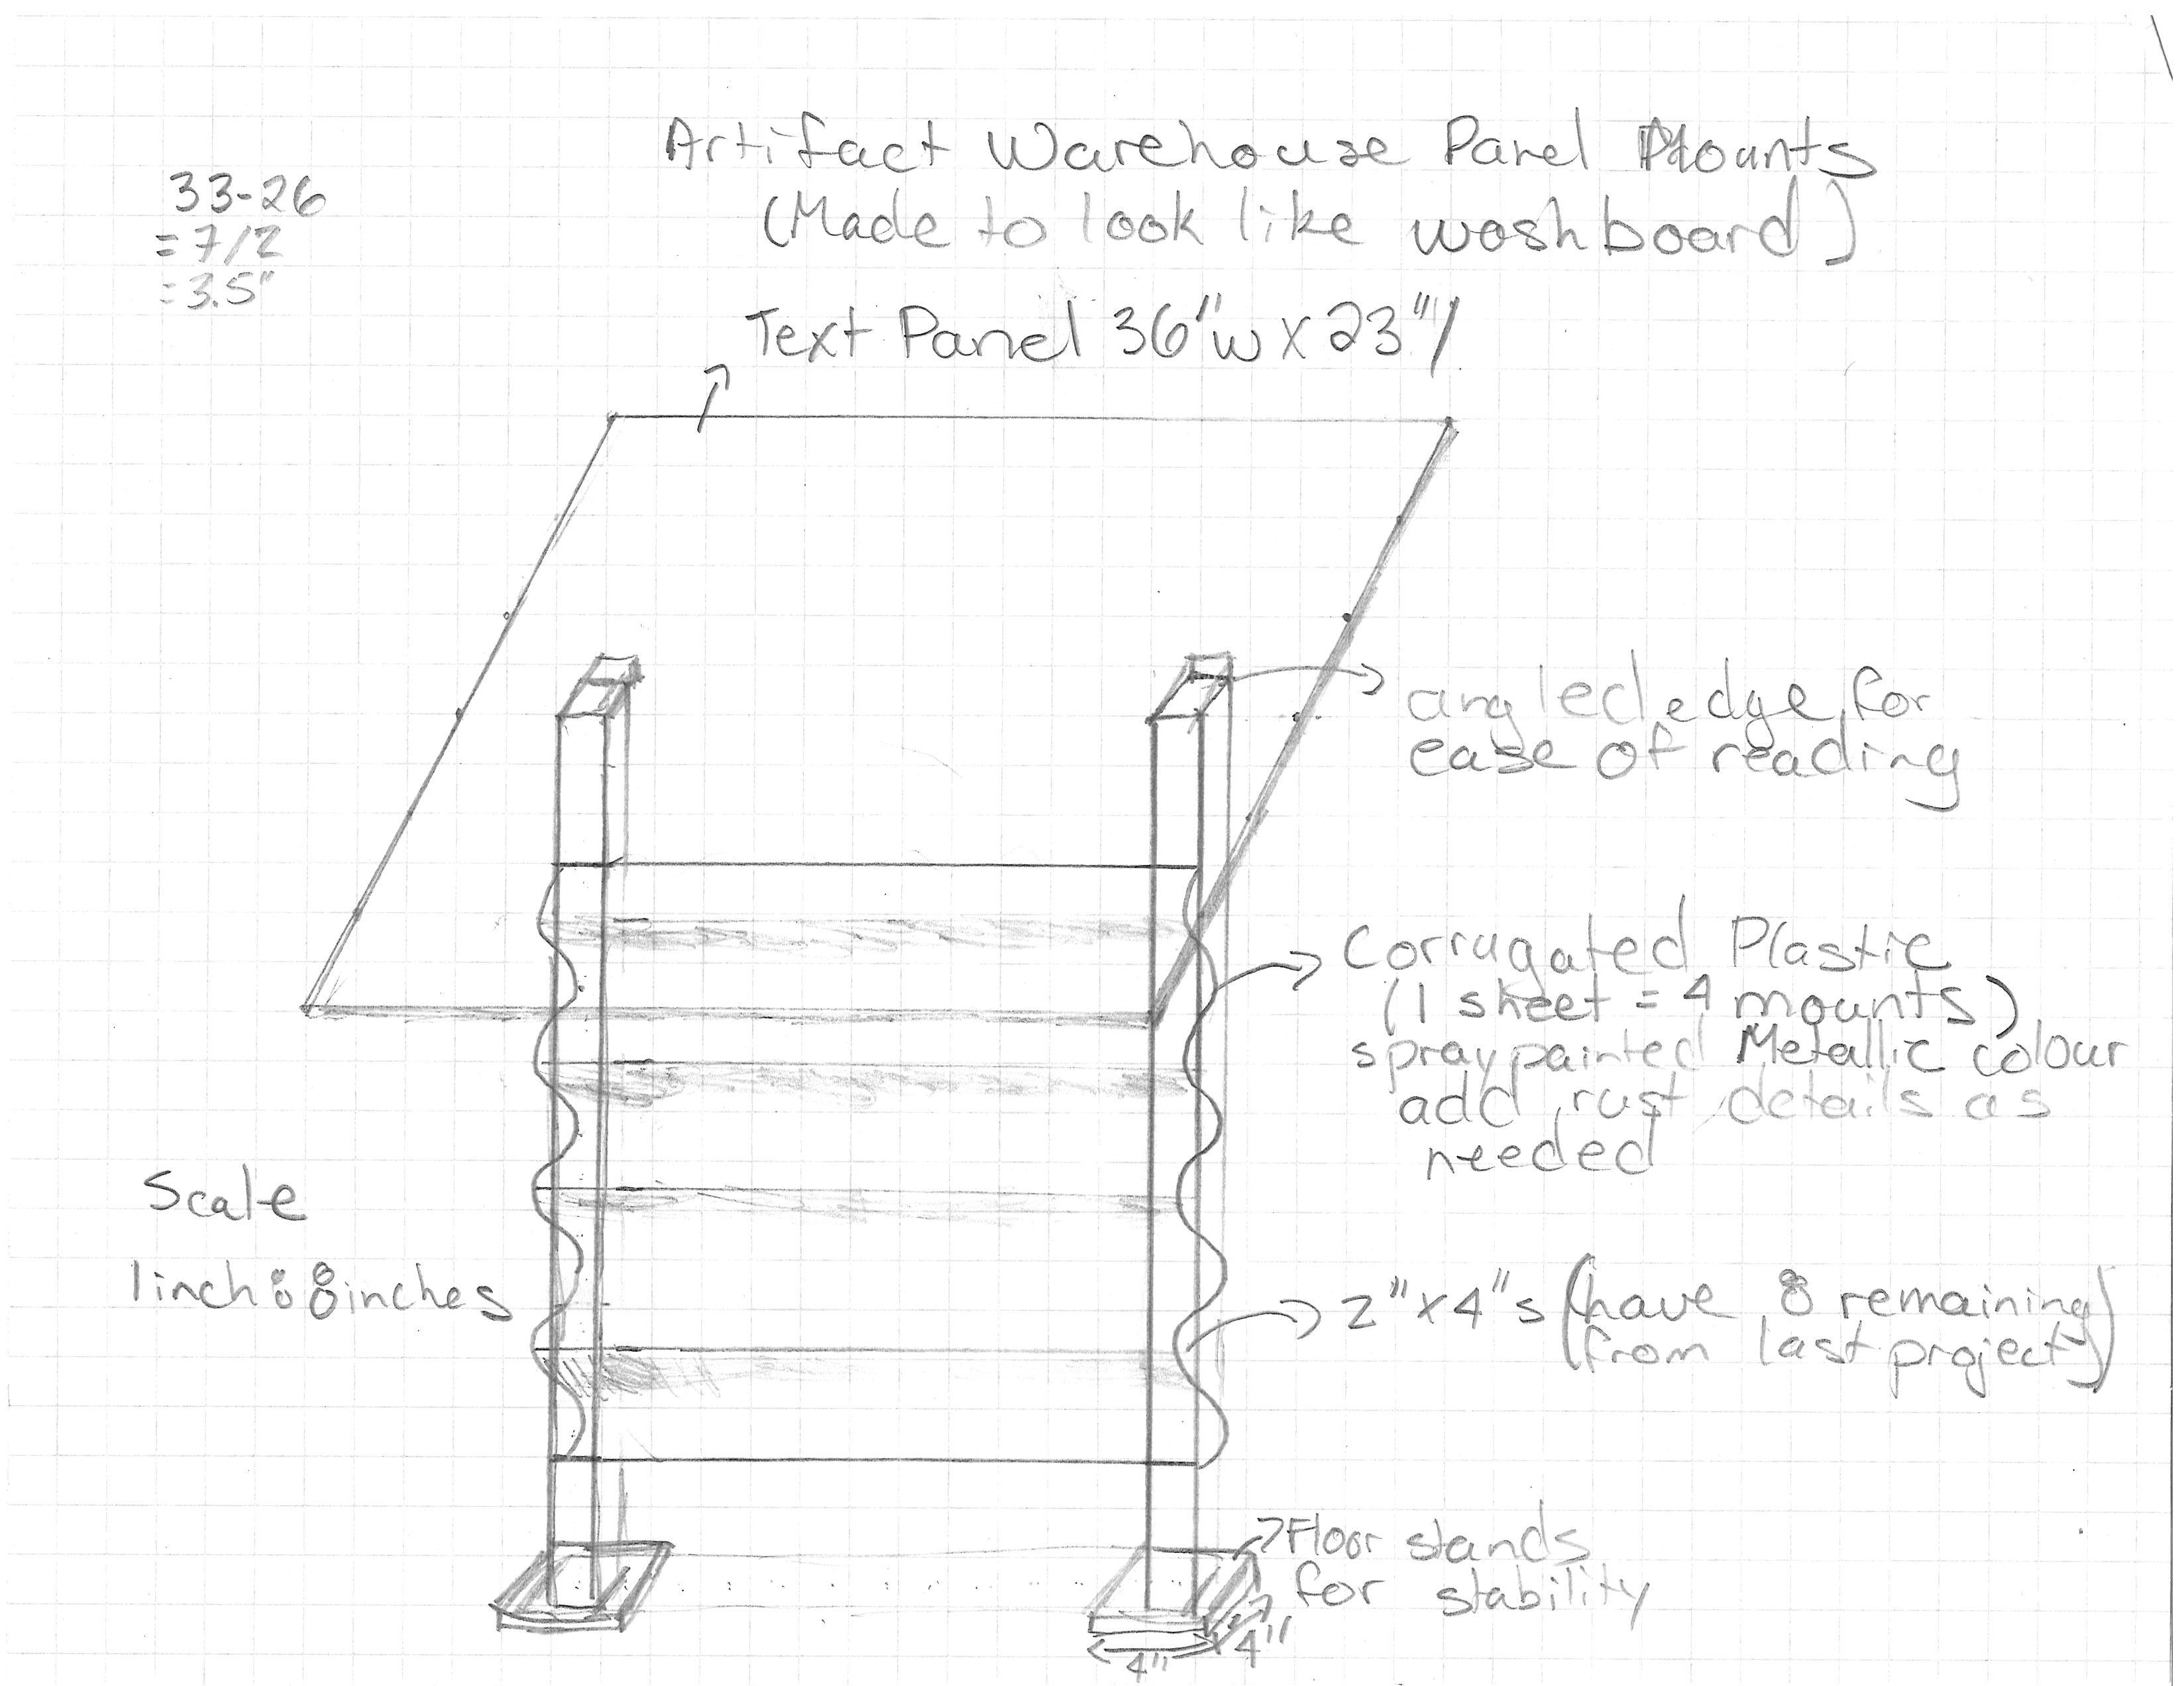 Artifact Warehouse Panel Mounts
(Made to look like washboard)
33-26
= 7/2
= 3.5"
Text Panel 36"w x 23"l
angled edge for
ease of reading
Corrugated Plastic
(1 sheet = 4 mounts)
spray painted Metallic colour
add rust details as
needed
Scale
1inch : 8inches
2"x4"s (have 8 remaining
from last project)
Floor stands
for stability
4"
4"